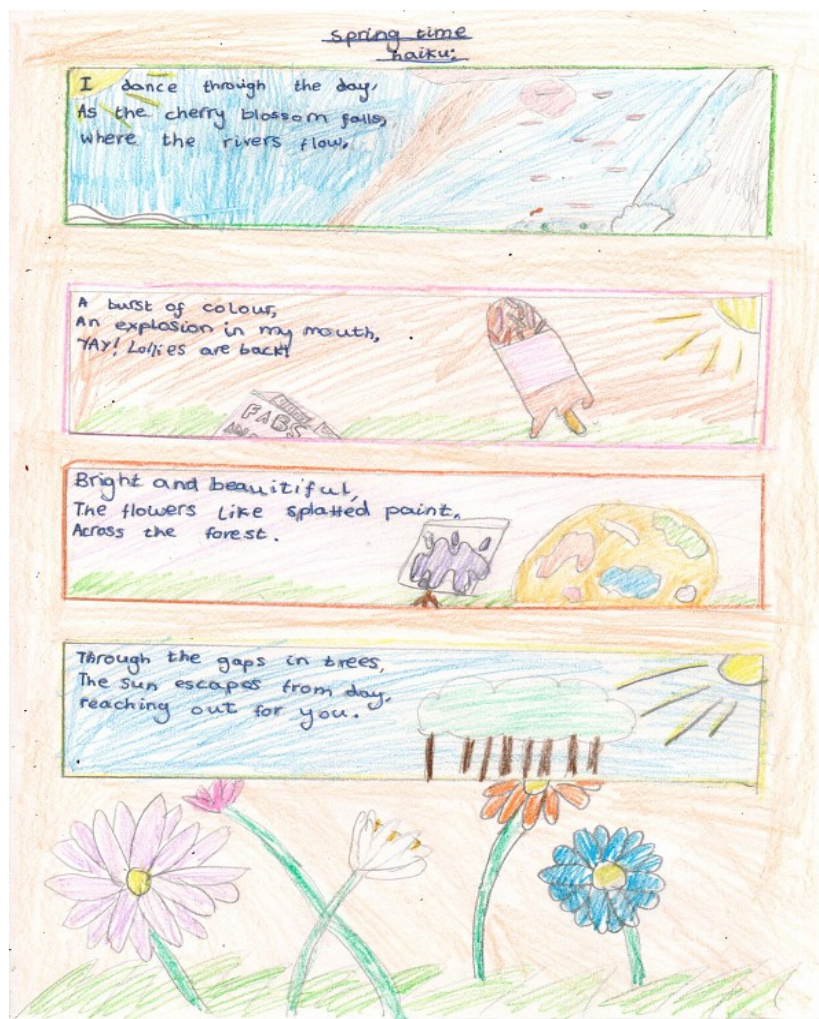 spring time
haiku:
I dance through the day,
As the cherry blossom falls,
where the rivers flow.
A burst of colour,
An explosion in my mouth,
YAY! Lollies are back!
FABS
Bright and beauitiful,
The flowers like splatted paint,
Across the forest.
Through the gaps in trees,
The sun escapes from day,
reaching out for you.